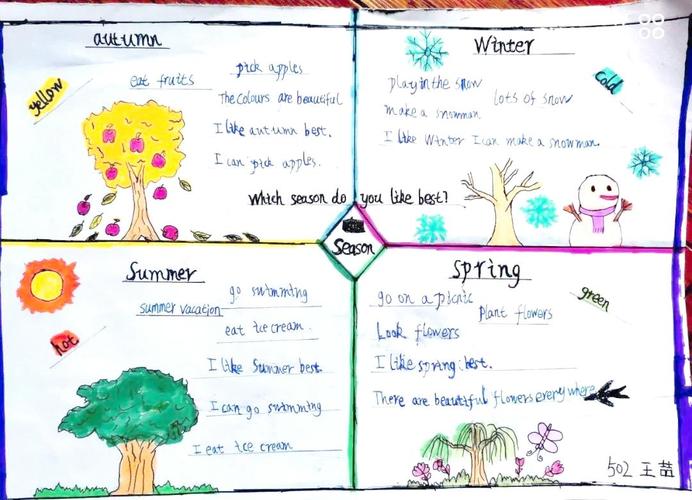 autumn
yellow
eat fruits
pick apples
The colours are beautiful
I like autumn best.
I can pick apples.
Winter
cold
play in the snow
lots of snow
make a snowman
I like Winter I can make a snowman.
Which season do you like best?
Season
Summer
hot
summer vacation
go swimming
eat ice cream.
I like Summer best.
I can go swimming
I eat ice cream
spring
green
go on a picnic
plant flowers
Look flowers
I like spring best.
There are beautiful flowers everywhere
502 王喆